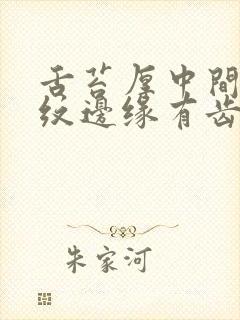 舌苔厚中間
纹邊缘有齿
朱家河